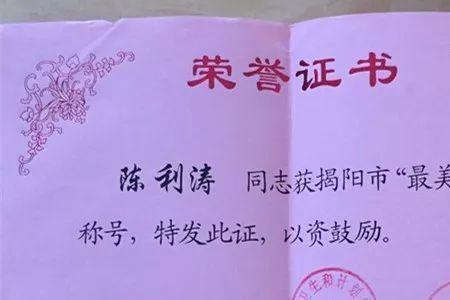 荣誉证书
陈利涛 同志获揭阳市“最美
称号，特发此证，以资鼓励。
卫生和计划